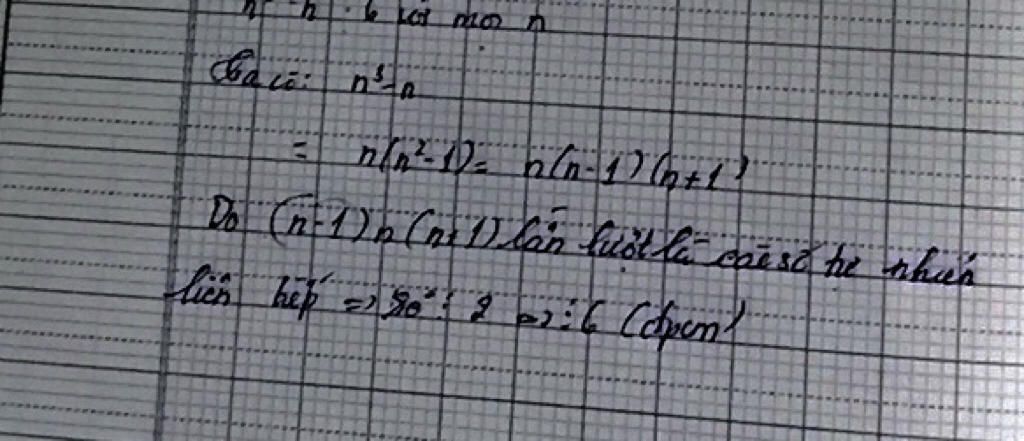 n³ - n ⋮ 6 với mọi n
Ta có: n³-n
= n(n²-1)= n(n-1)(n+1)
Do (n-1)n(n+1) lần lượt là các số tự nhiên
liên tiếp => ⋮ 2 => ⋮ 6 (đpcm)